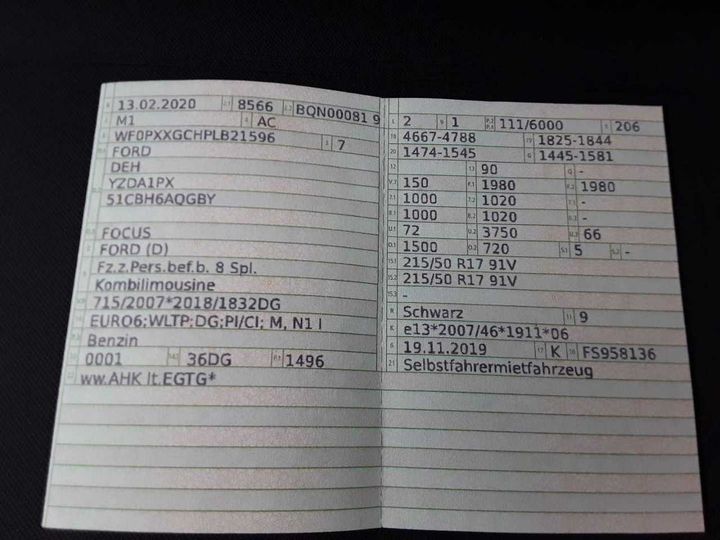 13.02.2020 8566 BQN00081 9
M1 AC
WF0PXXGCHPLB21596 7
FORD
DEH
YZDA1PX
51CBH6AQGBY
FOCUS
FORD (D)
Fz.z.Pers.bef.b. 8 Spl.
Kombilimousine
715/2007*2018/1832DG
EURO6;WLTP;DG;PI/CI; M, N1 I
Benzin
0001 36DG 1496
ww.AHK lt.EGTG*
2 1 111/6000 206
4667-4788 1825-1844
1474-1545 1445-1581
90 -
150 1980 1980
1000 1020 -
1000 1020 -
72 3750 66
1500 720 5 -
215/50 R17 91V
215/50 R17 91V
-
Schwarz 9
e13*2007/46*1911*06
19.11.2019 K FS958136
Selbstfahrermietfahrzeug